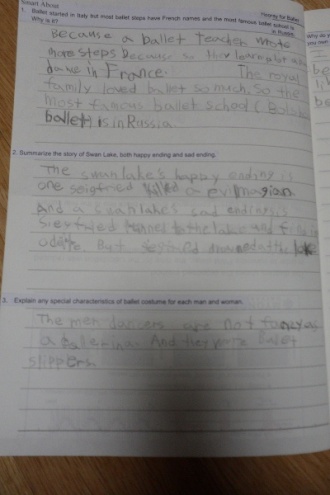 Smart About
Hooray for Ballet
1. Ballet started in Italy but most ballet steps have French names and the most famous ballet school is in Russia.
Why is it?
Because a ballet teacher wrote
more steps because so they
dance in France. The royal
family loved ballet so much. So the
most famous ballet school (
ballet is in Russia.
2. Summarize the story of Swan Lake, both happy ending and sad ending.
The swan lake's happy ending is
one seigfried killed a evil magian
And a swan lake's sad ending is
to the lake and
odite. But the lake
3. Explain any special characteristics of ballet costume for each man and woman.
The men dancers are not
a ballerina. And they ballet
slippers.
Why do